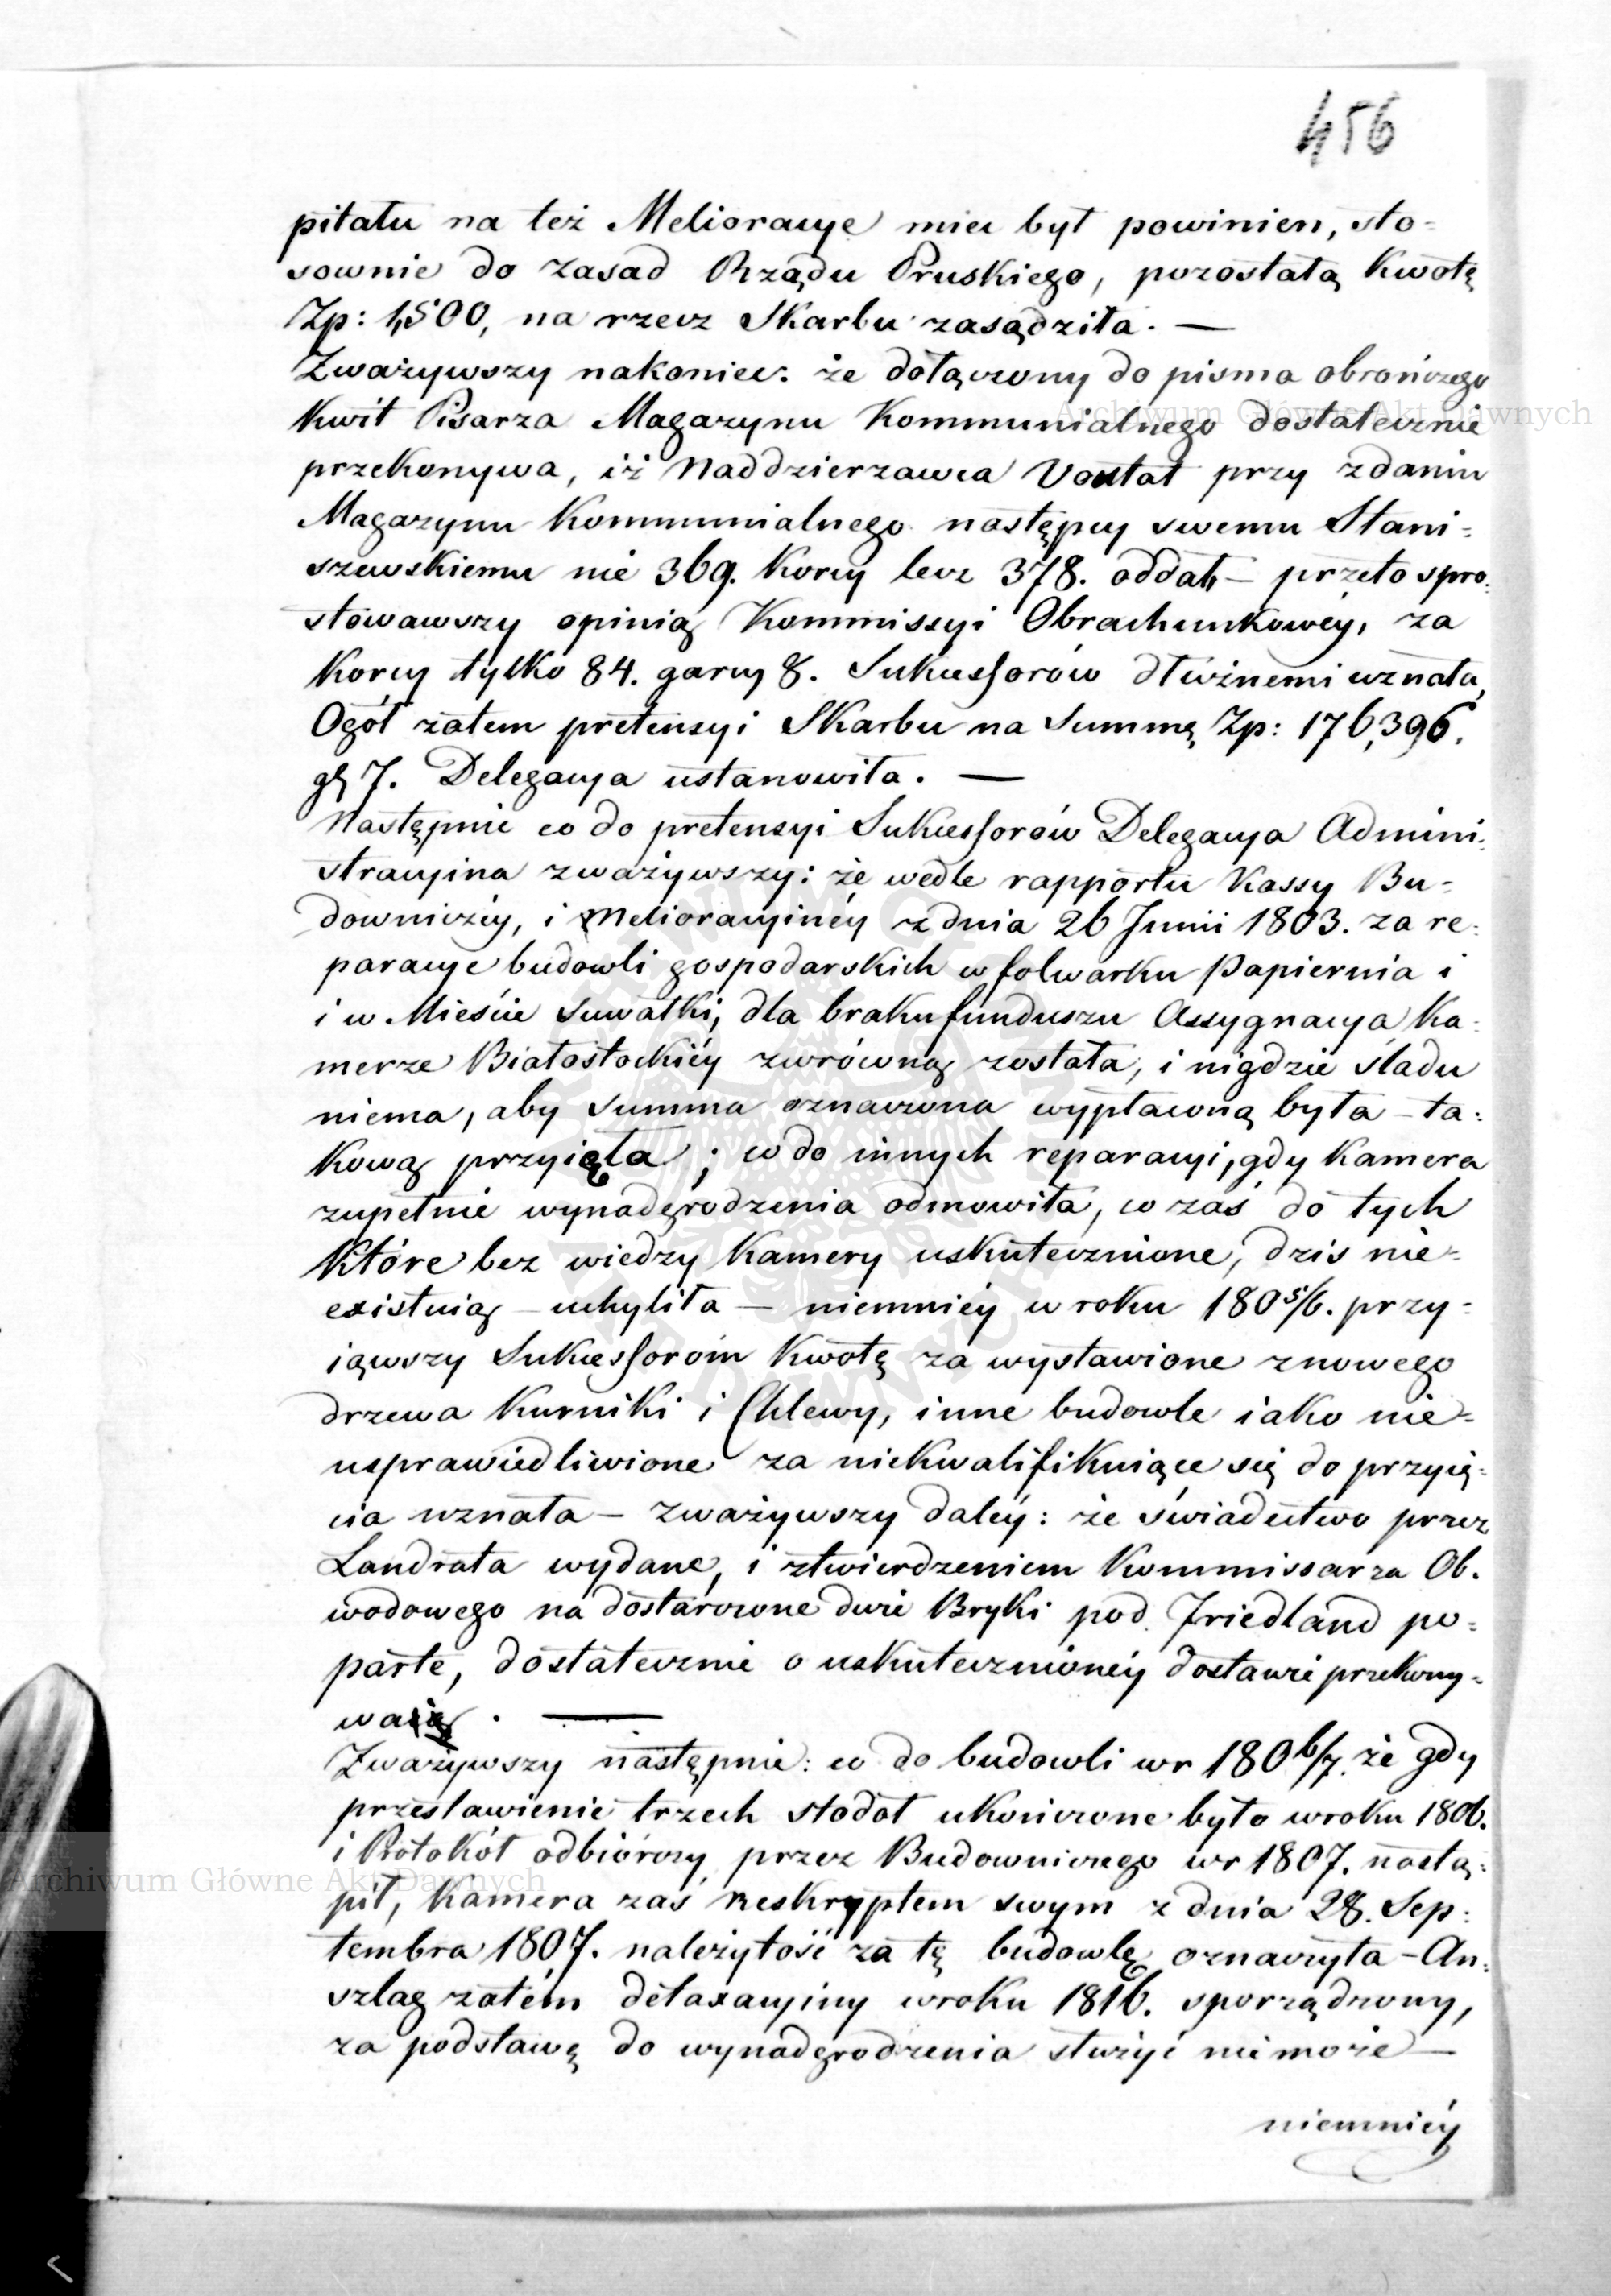 456
pitału na też Melioracye mieć był powinien, sto-
sownie do zasad Rządu Pruskiego, pozostałą Kwotę
Zp: 1,500, na rzecz Skarbu zasądziła. —
Zważywszy nakoniec: że dołączony do pisma obrończego
Kwit Pisarza Magazynu Kommunialnego dostatecznie
przekonywa, iż Naddzierzawca Voutat przy zdaniu
Magazynu Kommunialnego następcy swemu Stani-
szewskiemu nie 369. Korcy lecz 378. oddał, – przeto spro-
stowawszy opinią Kommissyi Obrachunkowéy, za
Korcy tylko 84. garcy 8. Sukcessorów dłużnemi uznała,
Ogół zatem pretensyi Skarbu na Summę Zp: 176,396.
gr 7. Delegacya ustanowiła. —
Następnie co do pretensyi Sukcessorów Delegacya Admini-
stracyina zważywszy: że wedle rapportu Kassy Bu-
downiczéy, i Melioracyinéy z dnia 26 Junii 1803. za re-
paracye budowli gospodarskich w folwarku Papiernia i
i w Mieście Suwałki, dla braku funduszu Assygnacya Ka-
merze Białostockiéy zwróconą została, i nigdzie śladu
niema, aby Summa oznaczona wypłaconą była – ta-
kową przyięła; co do innych reparacyi, gdy Kamera
zupełnie wynadgrodzenia odmowiła, co zaś do tych
Które bez wiedzy Kamery uskutecznione, dziś nie-
existuią – uchyliła – niemniéy w roku 180 5/6. przy-
iąwszy Sukcessorom Kwotę za wystawione z nowego
drzewa Kurniki i Chlewy, inne budowle iako nie-
usprawiedliwione za niekwalifikuiące się do przyię-
cia uznała – Zważywszy daléy: że świadectwo przez
Landrata wydane, i ztwierdzeniem Kommissarza Ob-
wodowego na dostarczone dwie Bryki pod Friedland po-
parte, dostatecznie o uskutecznionéy dostawie przekony-
waią. —
Zważywszy następnie: co do budowli w r 180 6/7. że gdy
przestawienie trzech stodół ukończone było w roku 1806.
i Protokół odbiórczy przez Budowniczego w r 1807. nastą-
pił, Kamera zaś Reskryptem swym z dnia 28. Sep-
tembra 1807. należytość za tę budowlę oznaczyła – An-
szlag zatém detaxacyiny w roku 1816. sporządzony,
za podstawę do wynadgrodzenia służyć nie może —
niemniéy
Archiwum Główne Akt Dawnych
Archiwum Główne Akt Dawnych